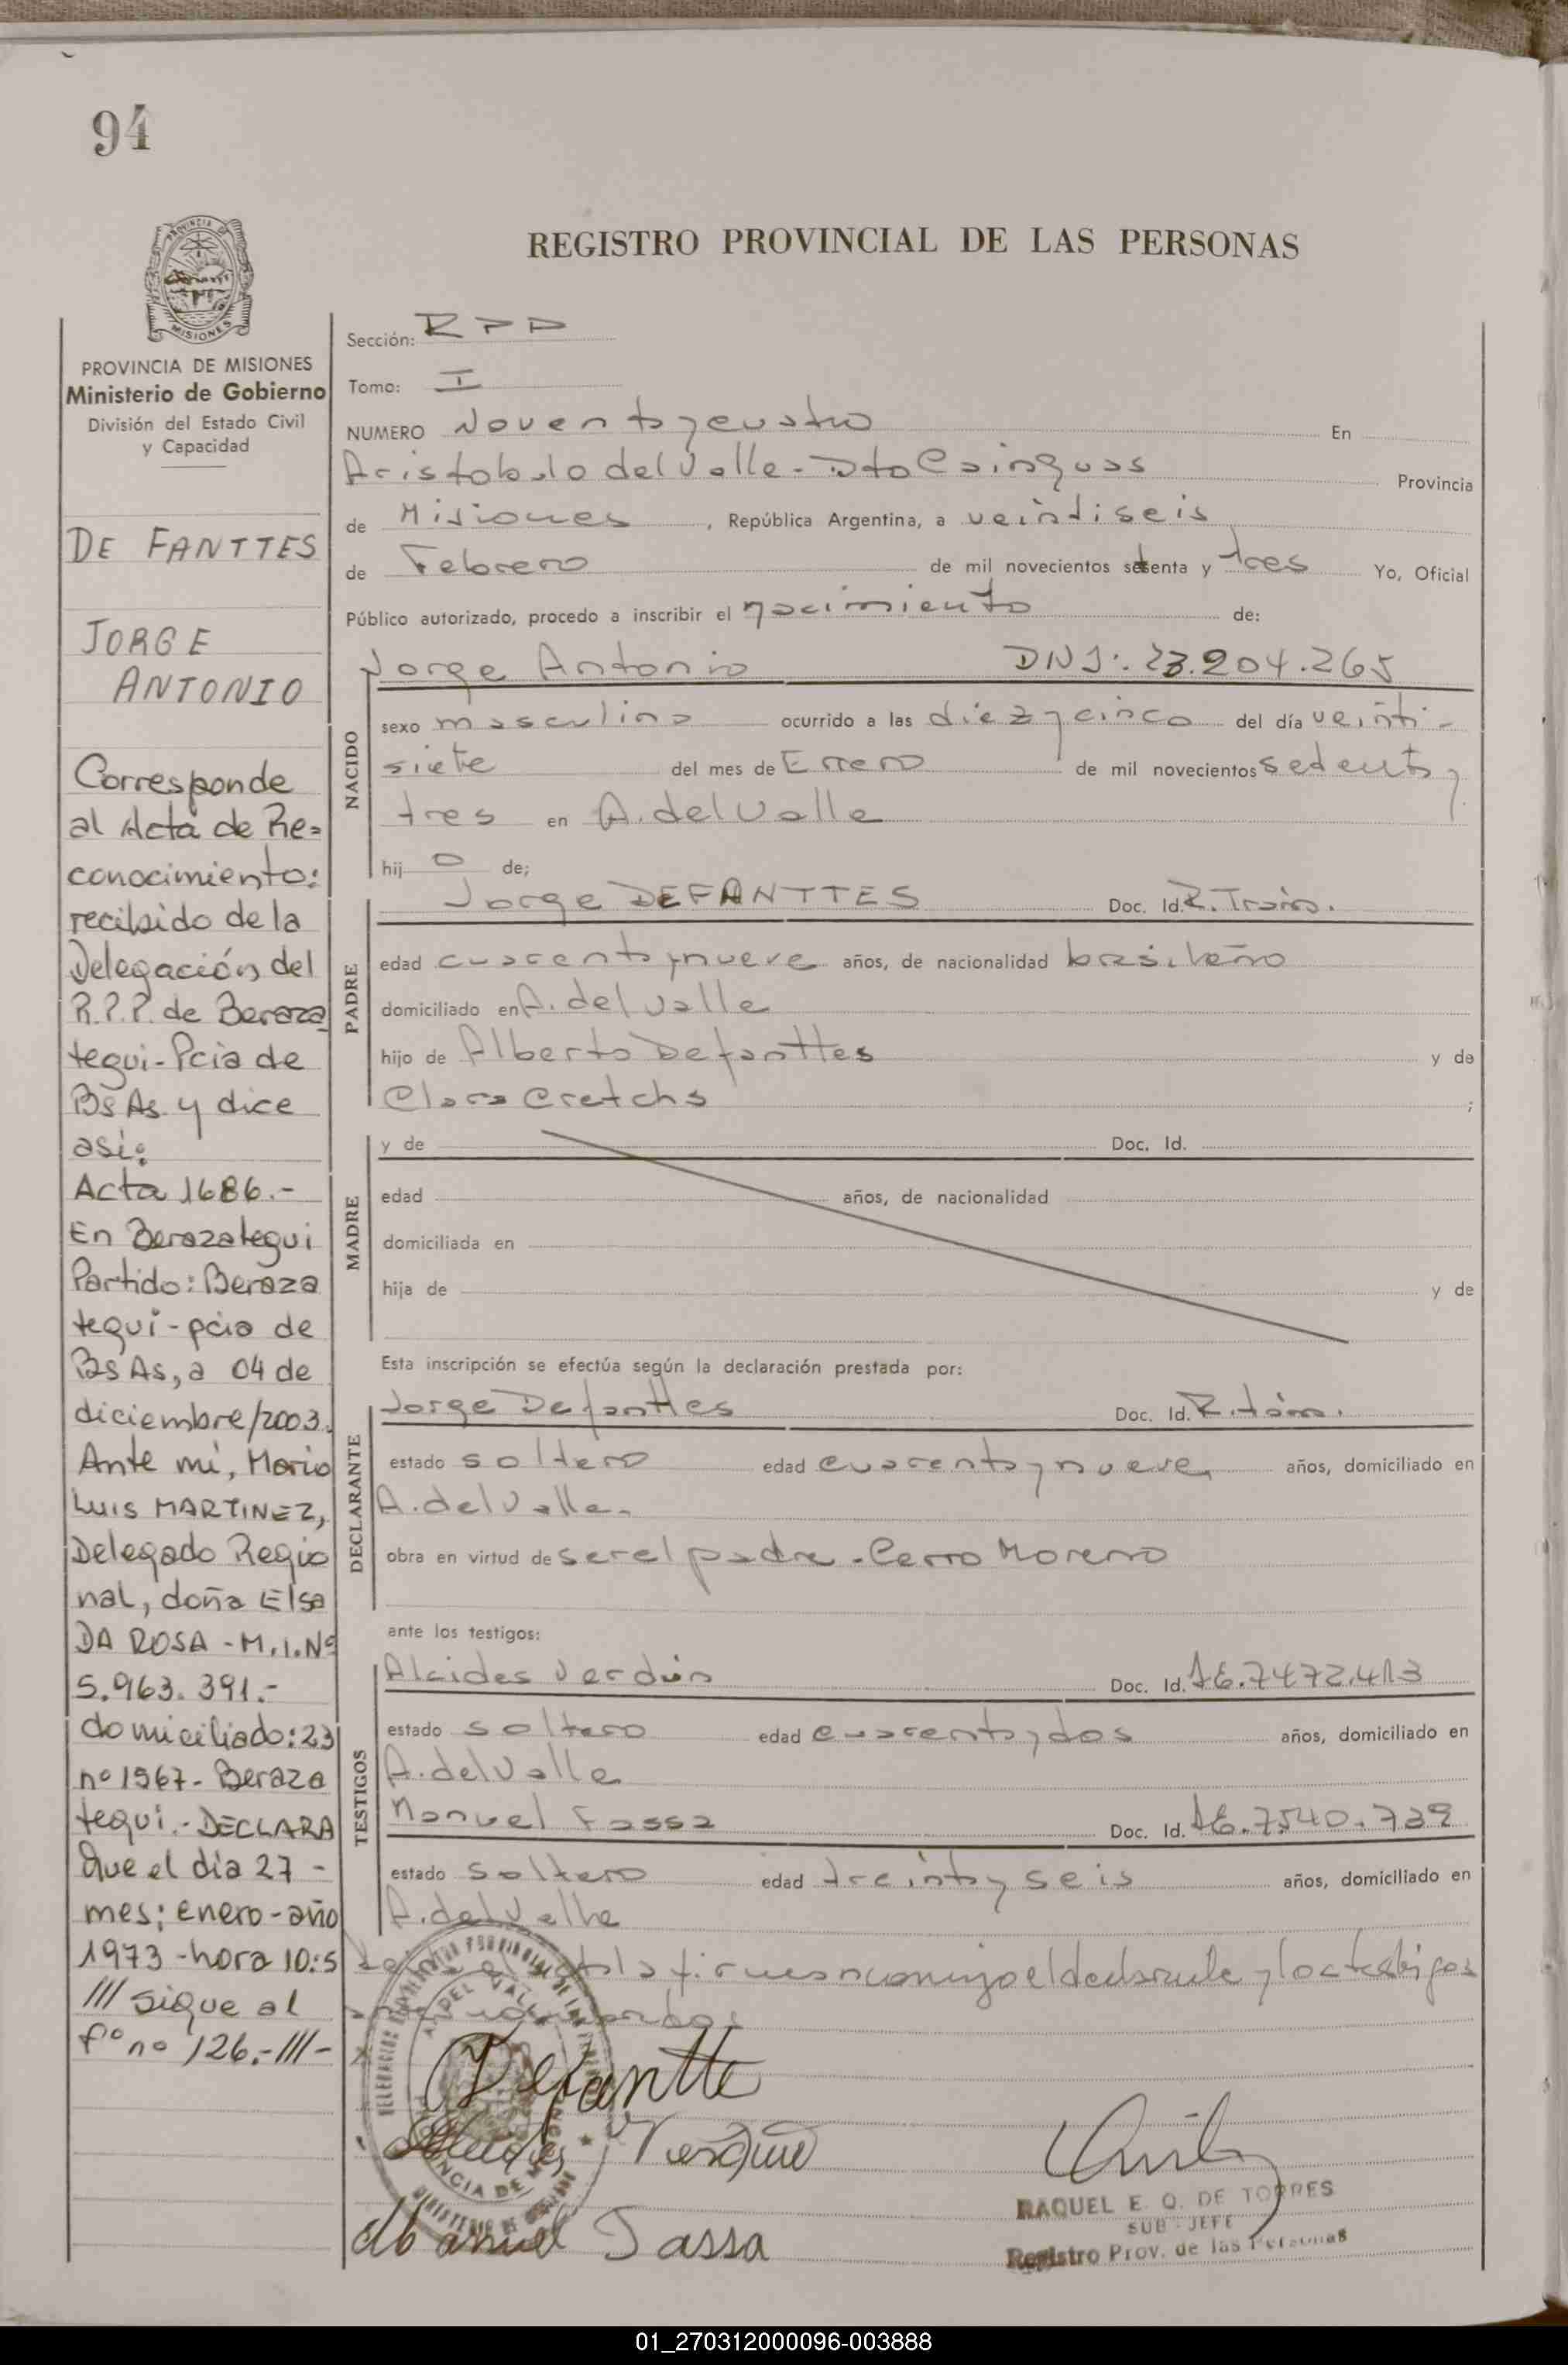 94
PROVINCIA
MISIONES
PROVINCIA DE MISIONES
Ministerio de Gobierno
División del Estado Civil
y Capacidad
DE FANTTES
JORGE
ANTONIO
Corresponde
al Acta de Re=
conocimiento:
recibido de la
Delegación del
R.P.P. de Beraza
tegui-Pcia de
Bs As. y dice
asi:
Acta 1686.-
En Berazategui
Partido: Beraza
tegui-pcia de
Bs As, a 04 de
diciembre/2003.
Ante mi, Mario
LUIS MARTINEZ,
Delegado Regio
nal, doña Elsa
DA ROSA - M.I.Nº
5.963.391.-
domiciliado: 23
nº 1567- Beraza
tegui.- DECLARA
Que el dia 27 -
mes; enero-año
1973 -hora 10:5
/// sigue al
fº nº 126.-///-
REGISTRO PROVINCIAL DE LAS PERSONAS
Sección: RPP
Tomo: I
NUMERO Noventa y cuatro En
Aristobulo del Valle - Dto Cainguas Provincia
de Misiones, República Argentina, a veintiseis
de Febrero de mil novecientos setenta y tres Yo, Oficial
Público autorizado, procedo a inscribir el nacimiento de:
Jorge Antonio DNI: 23.204.265
NACIDO
sexo masculino ocurrido a las diez y cinco del día veinti-
siete del mes de Enero de mil novecientos setenta y
tres en A. del Valle
hij o de;
PADRE
Jorge DEFANTTES Doc. Id. R. Trám.
edad cuarenta y nueve años, de nacionalidad brasileño
domiciliado en A. del Valle
hijo de Alberto Defanttes y de
Clara Cretchs ;
MADRE
y de Doc. Id.
edad años, de nacionalidad
domiciliada en
hija de y de
Esta inscripción se efectúa según la declaración prestada por:
DECLARANTE
Jorge Defanttes Doc. Id. R. trám.
estado soltero edad cuarenta y nueve años, domiciliado en
A. del Valle.
obra en virtud de ser el padre - Cerro Moreno
ante los testigos:
TESTIGOS
Alcides Verdún Doc. Id. 16.7472.413
estado soltero edad cuarenta y dos años, domiciliado en
A. del Valle
Manuel Fassa Doc. Id. 16.7540.739
estado soltero edad treinta y seis años, domiciliado en
A. del Valle
el acta la firman conmigo el declarante y los testigos
Defantte
Alcides Verdún
Manuel Fassa
RAQUEL E. Q. DE TORRES
SUB - JEFE
Registro Prov. de las Personas
01_270312000096-003888